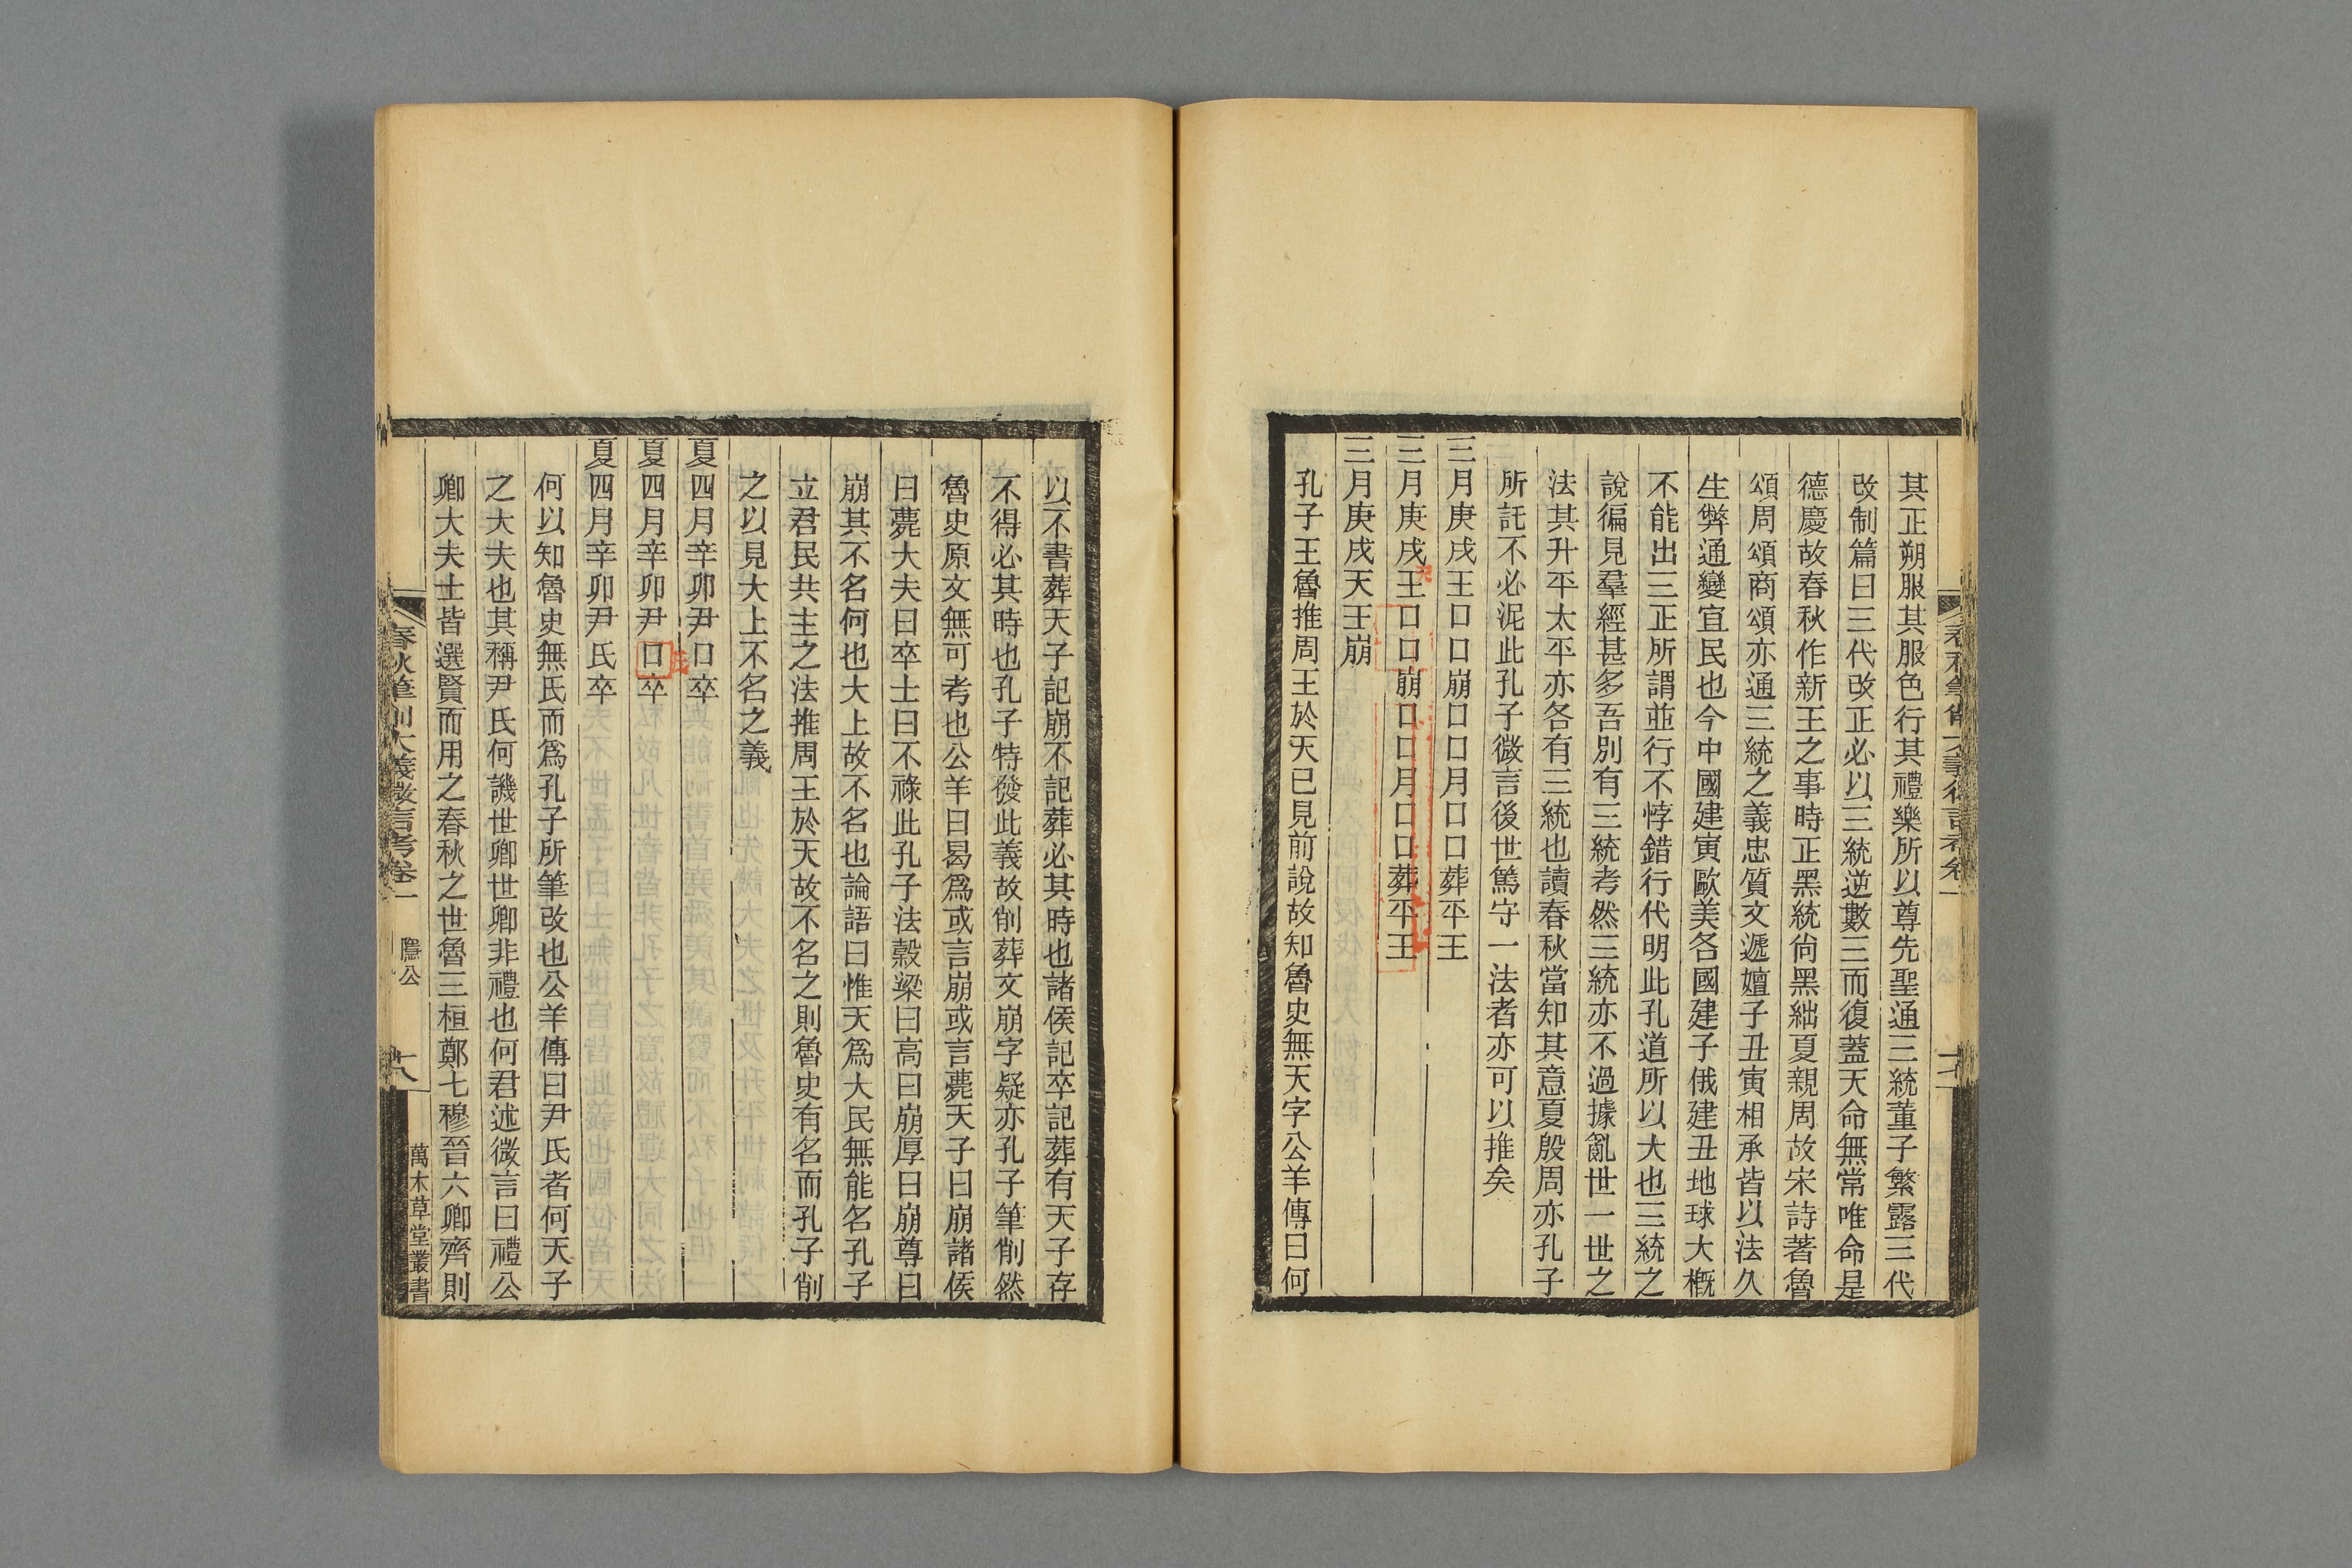 其正朔服其服色行其禮樂所以尊先聖通三統董子繁露三代
改制篇曰三代改正必以三統逆數三而復蓋天命無常唯命是
德慶故春秋作新王之事時正黑統尙黑絀夏親周故宋詩著魯
頌周頌商頌亦通三統之義忠質文遞嬗子丑寅相承皆以法久
生弊通變宜民也今中國建寅歐美各國建子俄建丑地球大概
不能出三正所謂並行不悖錯行代明此孔道所以大也三統之
說徧見羣經甚多吾別有三統考然三統亦不過據亂世一世之
法其升平太平亦各有三統也讀春秋當知其意夏殷周亦孔子
所託不必泥此孔子微言後世篤守一法者亦可以推矣
三月庚戌王口口崩口口月口口葬平王
三月庚戌王口口崩口口月口口葬平王
三月庚戌天王崩
孔子王魯推周王於天已見前說故知魯史無天字公羊傳曰何
以不書葬天子記崩不記葬必其時也諸侯記卒記葬有天子存
不得必其時也孔子特發此義故削葬文崩字疑亦孔子筆削然
魯史原文無可考也公羊曰曷爲或言崩或言薨天子曰崩諸侯
曰薨大夫曰卒士曰不祿此孔子法穀梁曰高曰崩厚曰崩尊曰
崩其不名何也大上故不名也論語曰惟天爲大民無能名孔子
立君民共主之法推周王於天故不名之則魯史有名而孔子削
之以見大上不名之義
夏四月辛卯尹口卒
夏四月辛卯尹口卒
夏四月辛卯尹氏卒
何以知魯史無氏而爲孔子所筆改也公羊傳曰尹氏者何天子
之大夫也其稱尹氏何譏世卿世卿非禮也何君述微言曰禮公
卿大夫士皆選賢而用之春秋之世魯三桓鄭七穆晉六卿齊則
春秋筆削大義微言考卷一
隱公
十八
萬木草堂叢書